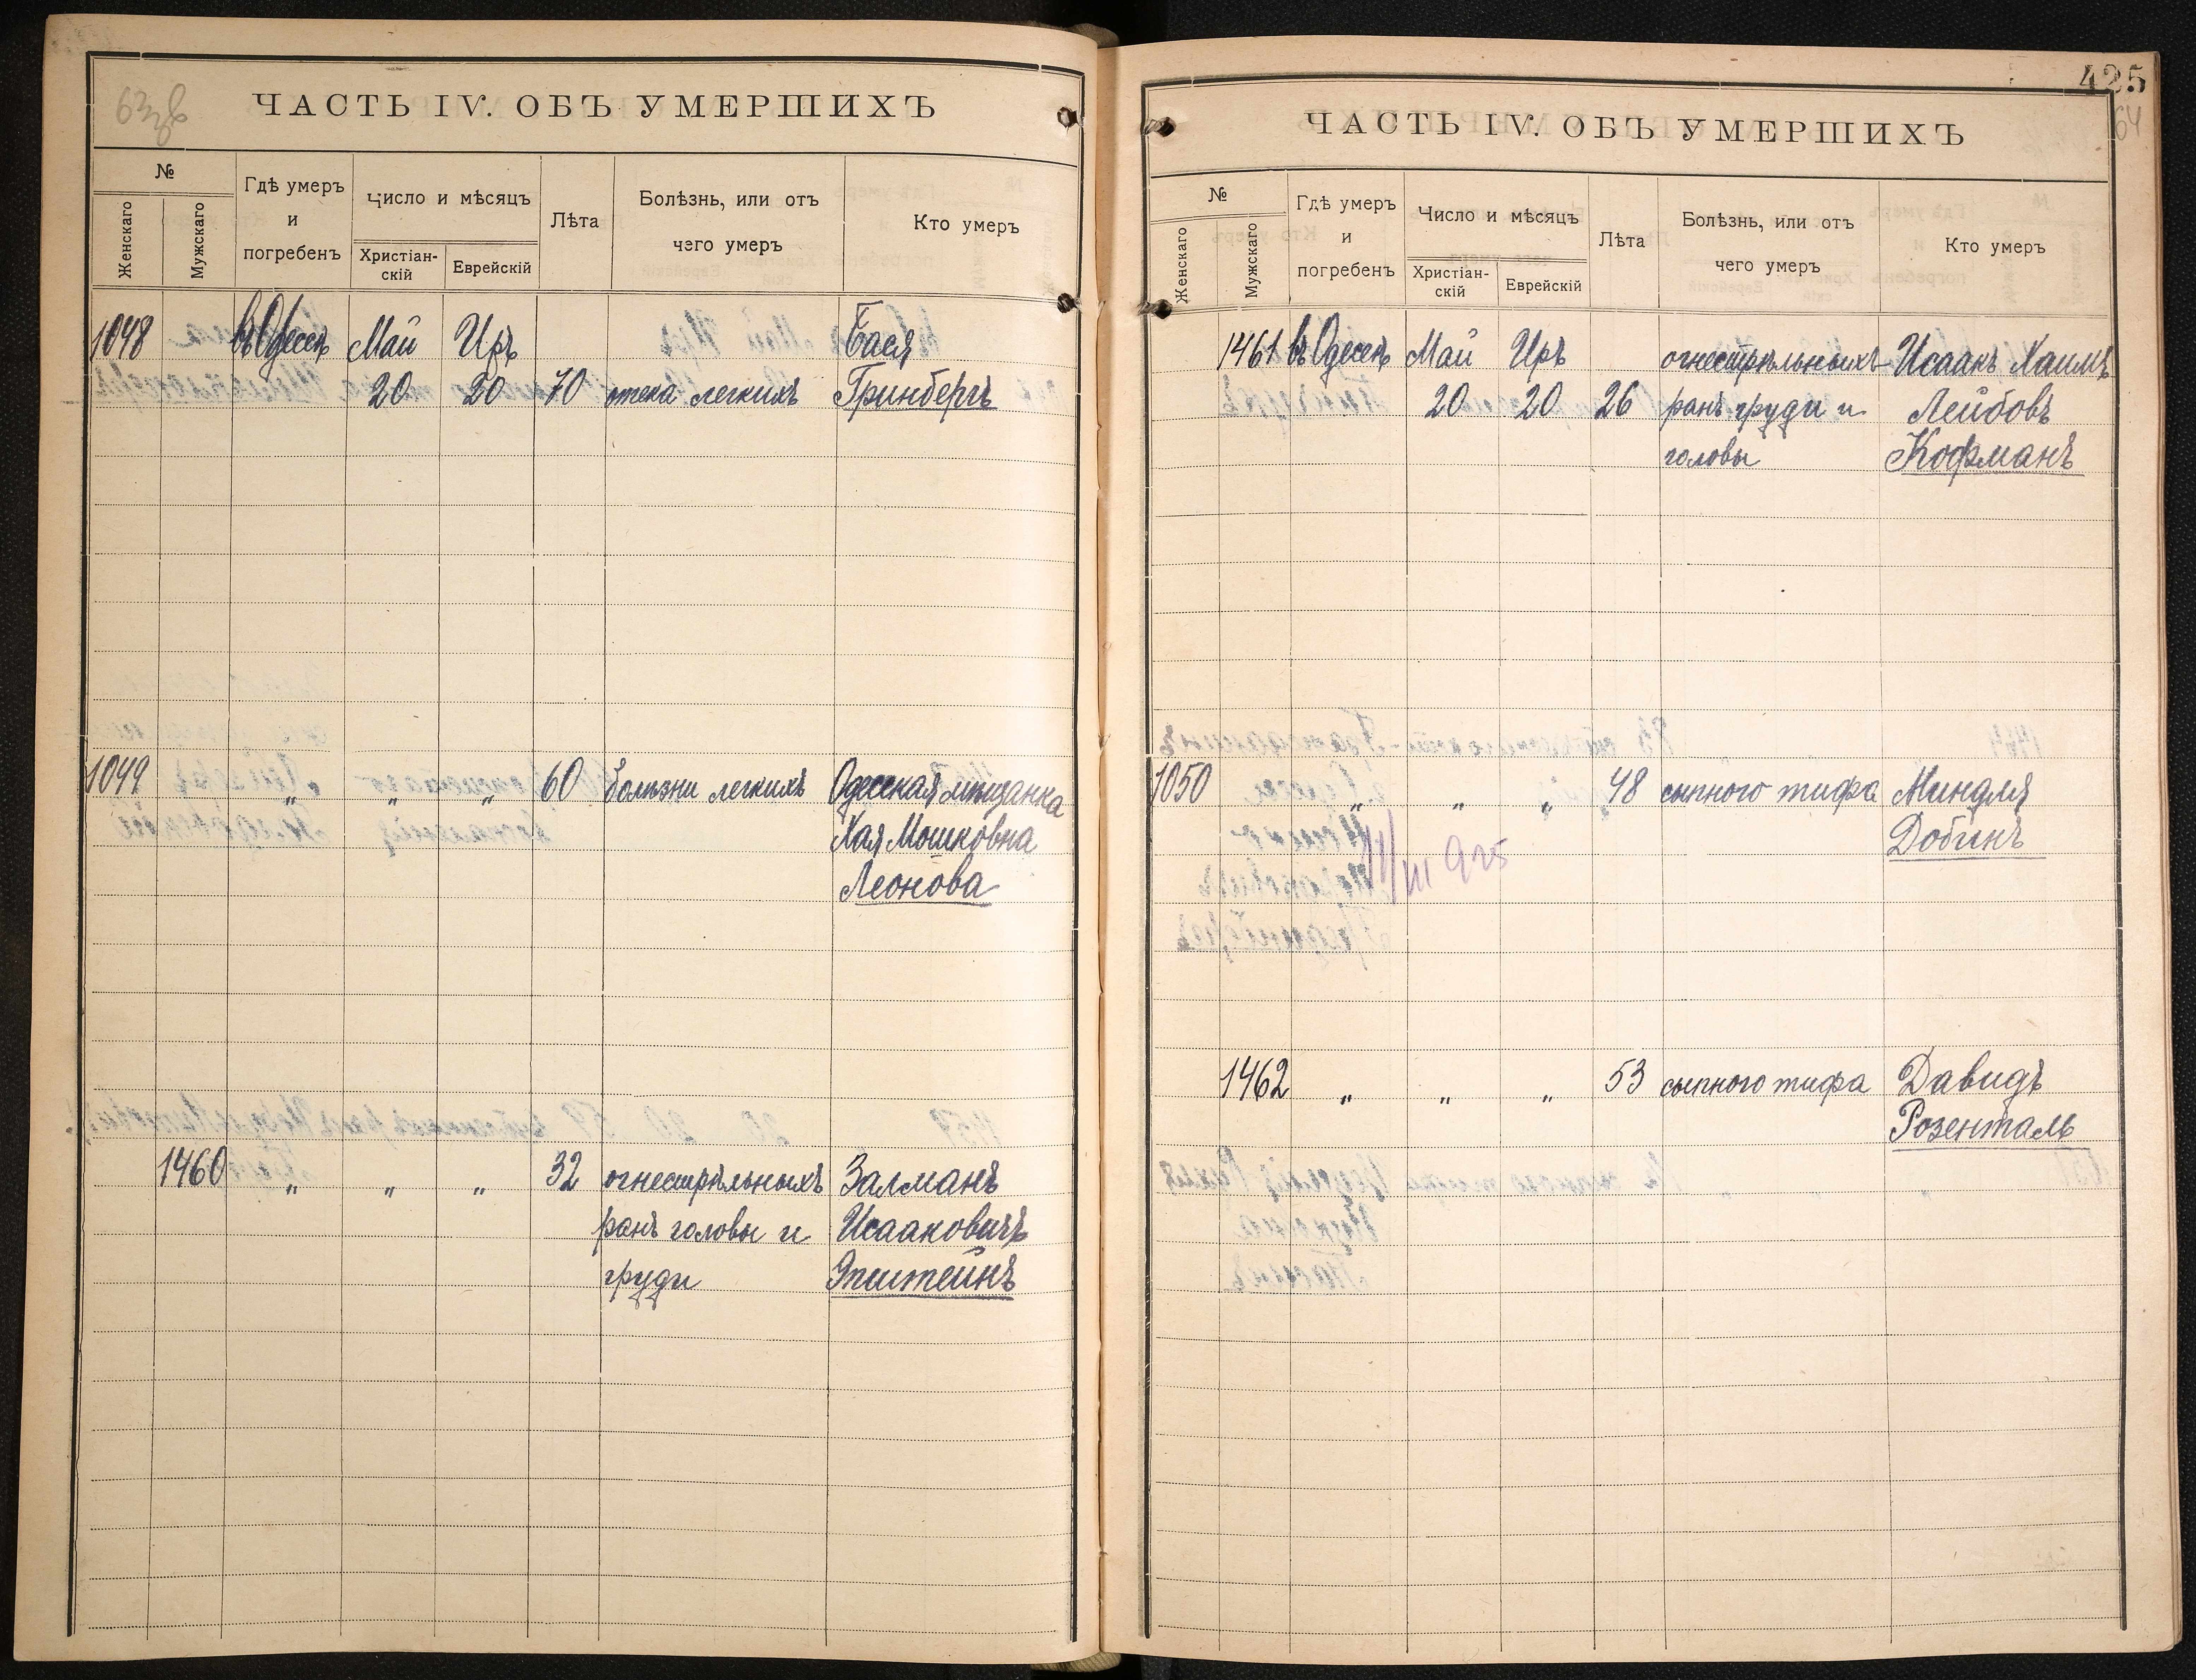 63об
ЧАСТЬ IV. ОБЪ УМЕРШИХЪ
№
Женскаго
Мужскаго
Гдѣ умеръ
и
погребенъ
Число и мѣсяцъ
Христіан-
скій
Еврейскій
Лѣта
Болѣзнь, или отъ
чего умеръ
Кто умеръ
1048 въ Одессѣ Май Иръ Бася
20 20 70 отека легкихъ Гринбергъ
1049 " " " 60 болѣзни легкихъ Одесская мѣщанка
Хая Мошковна
Леонова
1460 " " " 32 огнестрѣльныхъ Залманъ
ранъ головы и Исааковичъ
груди Эпштейнъ
425
64
ЧАСТЬ IV. ОБЪ УМЕРШИХЪ
№
Женскаго
Мужскаго
Гдѣ умеръ
и
погребенъ
Число и мѣсяцъ
Христіан-
скій
Еврейскій
Лѣта
Болѣзнь, или отъ
чего умеръ
Кто умеръ
1461 въ Одессѣ Май Иръ огнестрѣльныхъ Исаакъ Хаимъ
20 20 26 ранъ груди и Лейбовъ
головы Кофманъ
1050 " " " 48 сыпного тифа Миндля
Добинъ
III 925
1462 " " " 53 сыпного тифа Давидъ
Розенталь